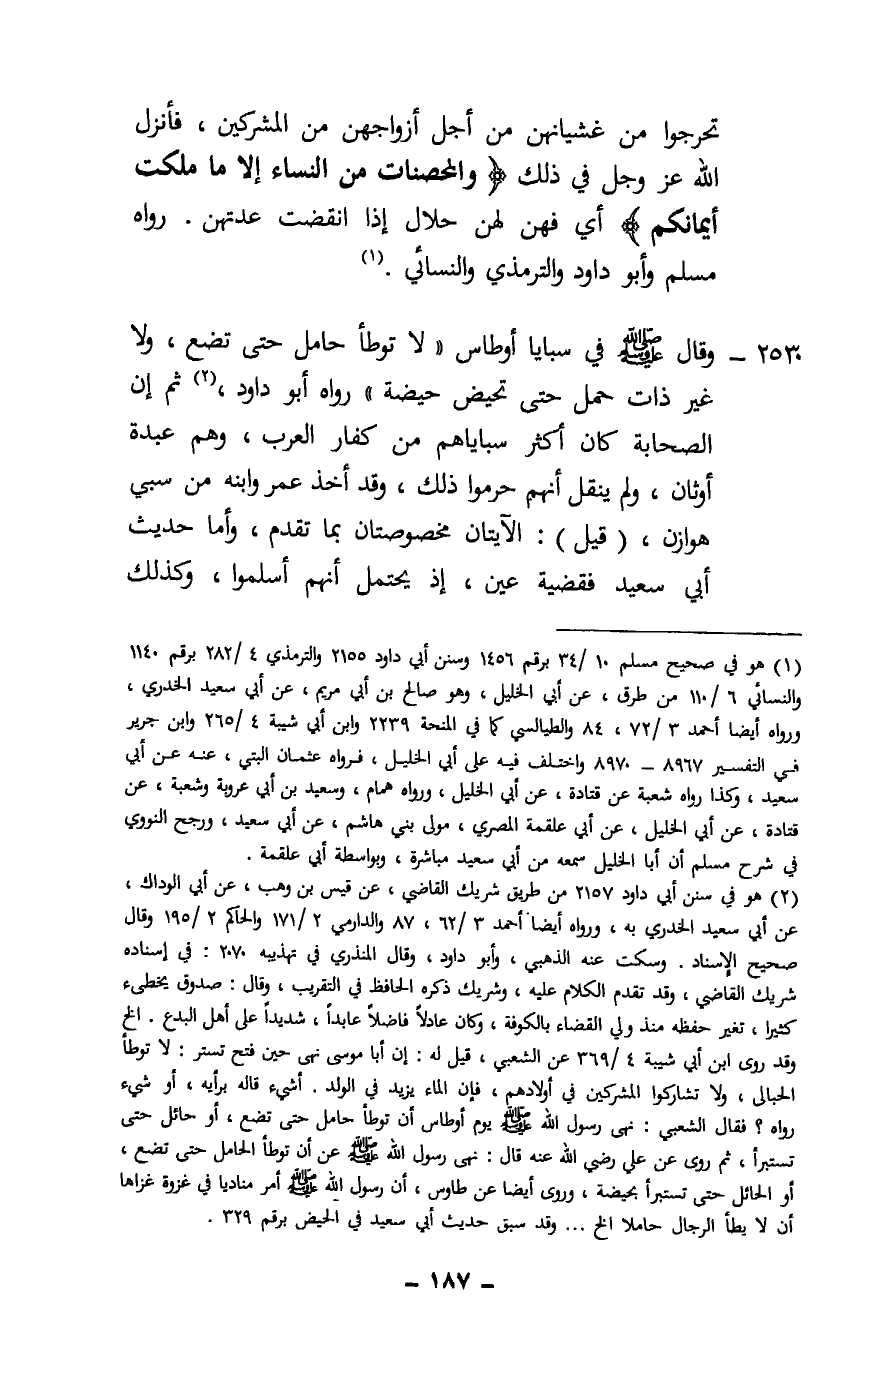 تحرجوا من غشيانهن من أجل أزواجهن من المشركين ، فأنزل
الله عز وجل في ذلك ﴿ والمحصنات من النساء إلا ما ملكت
أيمانكم ﴾ أي فهن لهن حلال إذا انقضت عدتهن . رواه
مسلم وأبو داود والترمذي والنسائي .(١)
٢٥٣٠ – وقال ﷺ في سبايا أوطاس « لا توطأ حامل حتى تضع ، ولا
غير ذات حمل حتى تحيض حيضة » رواه أبو داود ،(٢) ثم إن
الصحابة كان أكثر سباياهم من كفار العرب ، وهم عبدة
أوثان ، ولم ينقل أنهم حرموا ذلك ، وقد أخذ عمر وابنه من سبي
هوازن ، ( قيل ) : الآيتان مخصوصتان بما تقدم ، وأما حديث
أبي سعيد فقضية عين ، إذ يحتمل أنهم أسلموا ، وكذلك
(١) هو في صحيح مسلم ١٠ /٣٤ برقم ١٤٥٦ وسنن أبي داود ٢١٥٥ والترمذي ٤ /٢٨٢ برقم ١١٤٠
والنسائي ٦ /١١٠ من طرق ، عن أبي الخليل ، وهو صالح بن أبي مريم ، عن أبي سعيد الخدري ،
ورواه أيضا أحمد ٣ /٧٢ ، ٨٤ والطيالسي كما في المنحة ٢٢٣٩ وابن أبي شيبة ٤ /٢٦٥ وابن جرير
في التفسير ٨٩٦٧ – ٨٩٧٠ واختلف فيه على أبي الخليل ، فرواه عثمان البتي ، عنه عن أبي
سعيد ، وكذا رواه شعبة عن قتادة ، عن أبي الخليل ، ورواه همام ، وسعيد بن أبي عروبة وشعبة ، عن
قتادة ، عن أبي الخليل ، عن أبي علقمة المصري ، مولى بني هاشم ، عن أبي سعيد ، ورجح النووي
في شرح مسلم أن أبا الخليل سمعه من أبي سعيد مباشرة ، وبواسطة أبي علقمة .
(٢) هو في سنن أبي داود ٢١٥٧ من طريق شريك القاضي ، عن قيس بن وهب ، عن أبي الوداك ،
عن أبي سعيد الخدري به ، ورواه أيضا أحمد ٣ /٦٢ ، ٨٧ والدارمي ٢ /١٧١ والحاكم ٢ /١٩٥ وقال
صحيح الإسناد . وسكت عنه الذهبي ، وأبو داود ، وقال المنذري في تهذيبه ٢٠٧٠ : في إسناده
شريك القاضي ، وقد تقدم الكلام عليه ، وشريك ذكره الحافظ في التقريب ، وقال : صدوق يخطىء
كثيرا ، تغير حفظه منذ ولي القضاء بالكوفة ، وكان عادلاً فاضلاً عابداً ، شديداً على أهل البدع . الخ
وقد روى ابن أبي شيبة ٤ /٣٦٩ عن الشعبي ، قيل له : إن أبا موسى نهى حين فتح تستر : لا توطأ
الحبالى ، ولا تشاركوا المشركين في أولادهم ، فإن الماء يزيد في الولد . أشيء قاله برأيه ، أو شيء
رواه ؟ فقال الشعبي : نهى رسول الله ﷺ يوم أوطاس أن توطأ حامل حتى تضع ، أو حائل حتى
تستبرأ ، ثم روى عن علي رضي الله عنه قال : نهى رسول الله ﷺ عن أن توطأ الحامل حتى تضع ،
أو الحائل حتى تستبرأ بحيضة ، وروى أيضا عن طاوس ، أن رسول الله ﷺ أمر مناديا في غزوة غزاها
أن لا يطأ الرجال حاملا الخ ... وقد سبق حديث أبي سعيد في الحيض برقم ٣٢٩ .
– ١٨٧ –